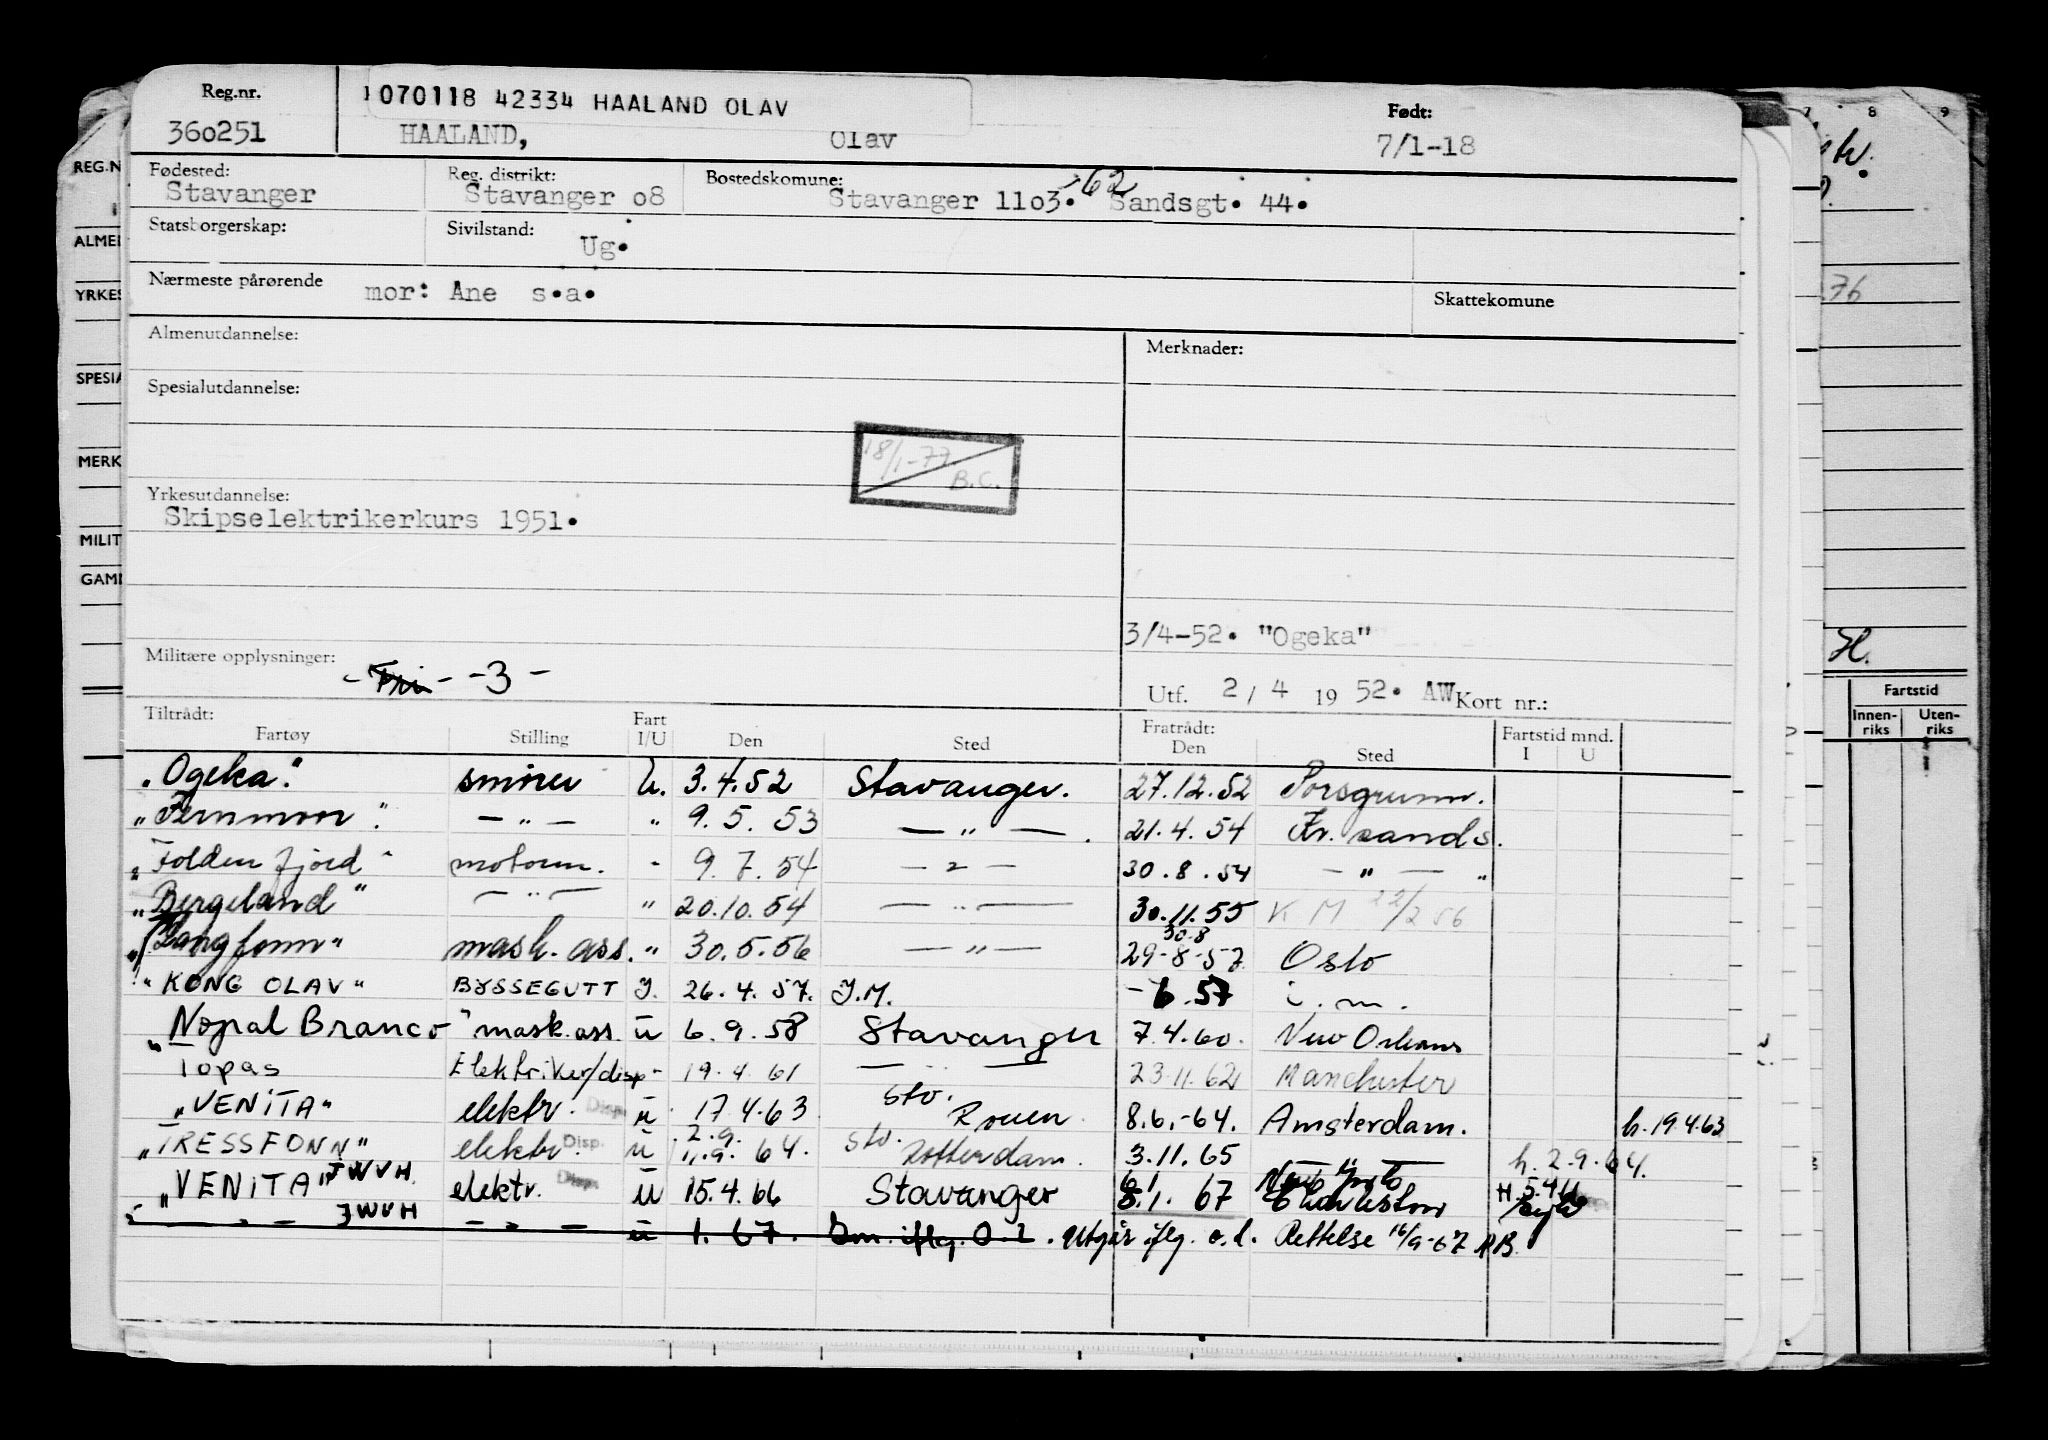 Reg.nr.
1070118 42334 HAALAND OLAV
Født:
360251 HAALAND, Olav 7/1-18
Fødested: Reg. distrikt: Bostedskomune:
Stavanger Stavanger o8 Stavanger 11o3. -62 Sandsgt. 44.
Statsborgerskap: Sivilstand: Ug.
Nærmeste pårørende mor: Ane s.a. Skattekomune
Almenutdannelse: Merknader:
Spesialutdannelse:
18/1-77 B.C.
Yrkesutdannelse:
Skipselektrikerkurs 1951.
3/4-52. "Ogeka"
Militære opplysninger: - Fri - -3-
Utf. 2/4 1952. AW Kort nr.:
Tiltrådt: Fratrådt: Fartstid mnd.
Fartøy Stilling Fart I/U Den Sted Den Sted I U
"Ogeka" smører u. 3.4.52 Stavanger. 27.12.52 Porsgrunn.
"Fernmoor" — " — " 9.5.53 — " — . 21.4.54 Kr. sands.
"Folden fjord" motorm. - 9.7.54 — " — 30.8.54 — " — "
"Bergeland" — " — " 20.10.54 — " — 30.11.55 K M 22/2 56
"Langfonn" mask. ass. " 30.5.56 — " — 30.8 29-8-57 Oslo
"KONG OLAV" BYSSEGUTT I. 26.4.57. I.M. -6.57 i.m.
"Nopal Branco" mask.ass. u 6.9.58 Stavanger 7.4.60. New Orleans
Topas Elektriker/disp - 19.4.61 — " — 23.11.62 Manchester
"VENITA" elektr. Disp. u 17.4.63 Stv. Rouen 8.6.-64. Amsterdam. h. 19.4.63
"TRESSFONN" elektr. Disp. u 2.9. 1.9.64. Stv. Rotterdam. 3.11.65 — " — h. 2.9.64.
"VENITA" JWVH elektr. Disp. u 15.4.66 Stavanger 6.1 8.1.67 Charleston H. 5.4
— " — JWVH — " — u 1.67. Om. iflg. O.l. Utgår iflg. o.l. Rettelse 16/9-67 AB.
REG.N
ALME
YRKES
SPESIA
MERK
MILIT
GAM
7 8 9
76
H.
Fartstid
Innen-riks Uten-riks